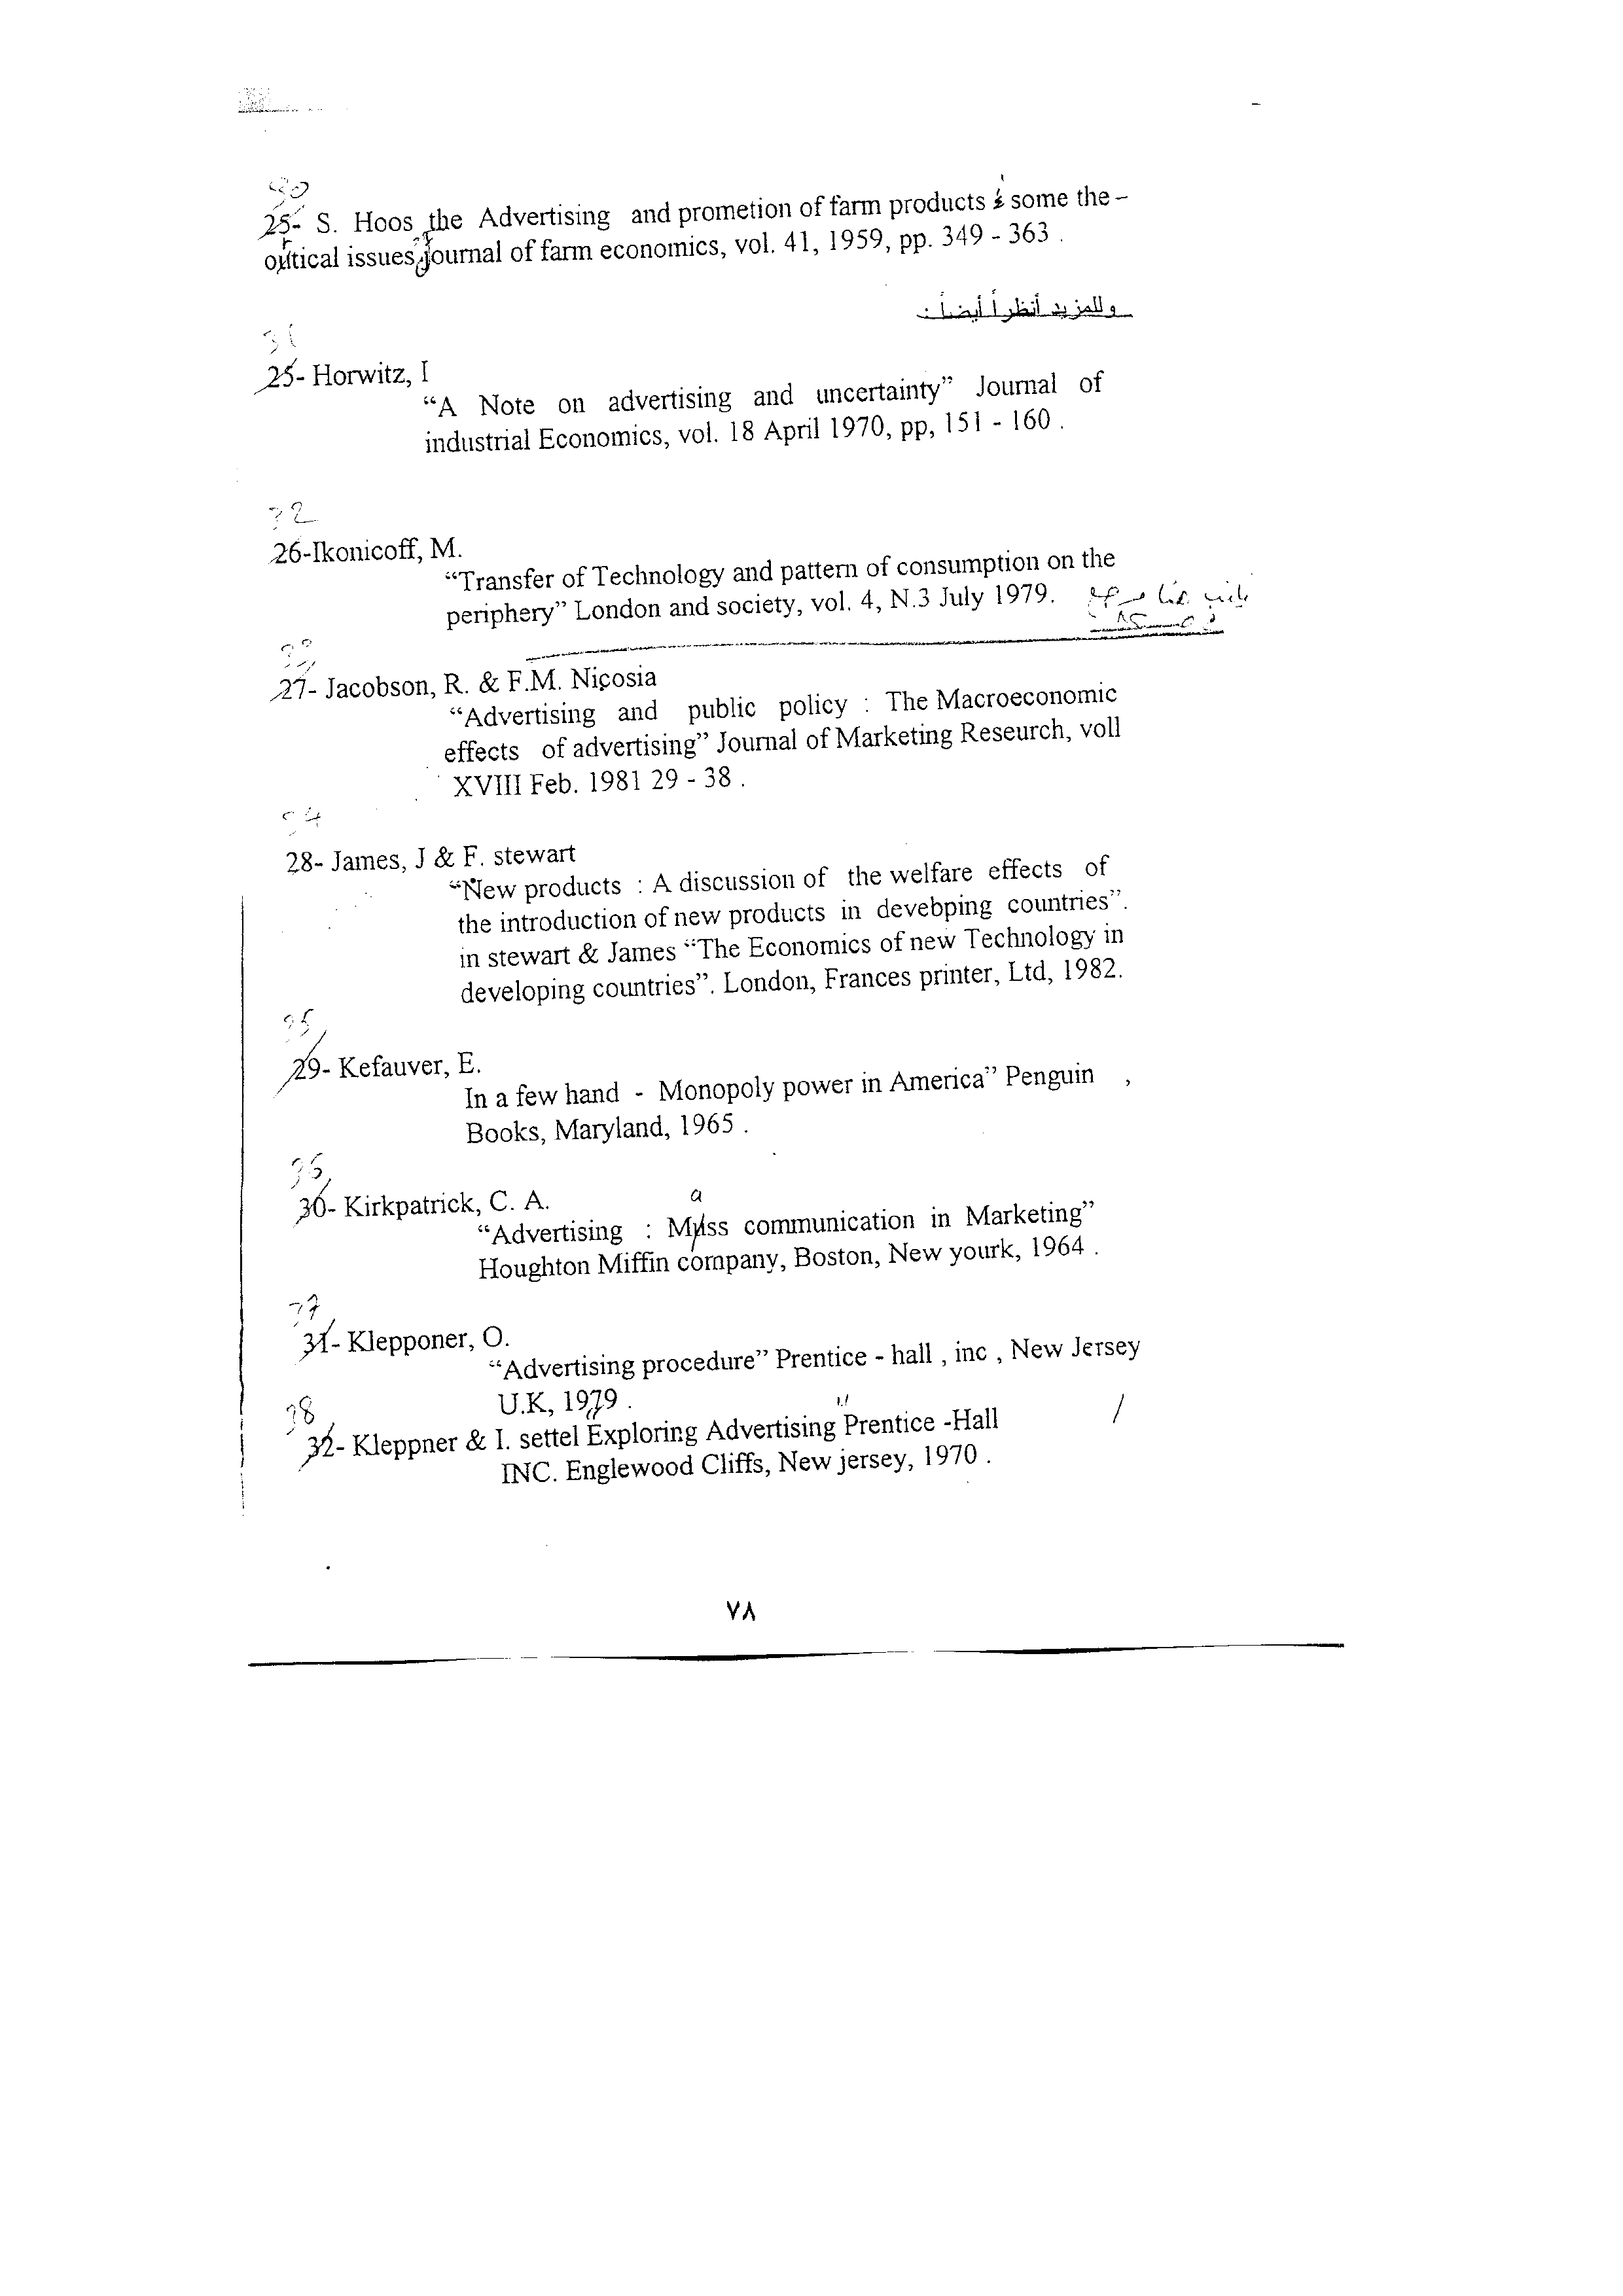 30
25- S. Hoos the Advertising and prometion of farm products : some the -
oritical issues, Journal of farm economics, vol. 41, 1959, pp. 349 - 363 .
وللمزيد أنظر أيضاً :
31
25- Horwitz, I
“A Note on advertising and uncertainty” Journal of
industrial Economics, vol. 18 April 1970, pp, 151 - 160 .
32
26-Ikonicoff, M.
“Transfer of Technology and pattern of consumption on the
periphery” London and society, vol. 4, N.3 July 1979.
33
27- Jacobson, R. & F.M. Nicosia
“Advertising and public policy : The Macroeconomic
effects of advertising” Journal of Marketing Reseurch, voll
XVIII Feb. 1981 29 - 38 .
34
28- James, J & F. stewart
“New products : A discussion of the welfare effects of
the introduction of new products in devebping countries”.
in stewart & James “The Economics of new Technology in
developing countries”. London, Frances printer, Ltd, 1982.
35
29- Kefauver, E.
In a few hand - Monopoly power in America” Penguin ,
Books, Maryland, 1965 .
36
30- Kirkpatrick, C. A.
“Advertising : Mass communication in Marketing”
Houghton Miffin company, Boston, New yourk, 1964 .
37
31- Klepponer, O.
“Advertising procedure” Prentice - hall , inc , New Jersey
U.K, 1979 .
38
32- Kleppner & I. settel Exploring Advertising Prentice -Hall
INC. Englewood Cliffs, New jersey, 1970 .
٧٨